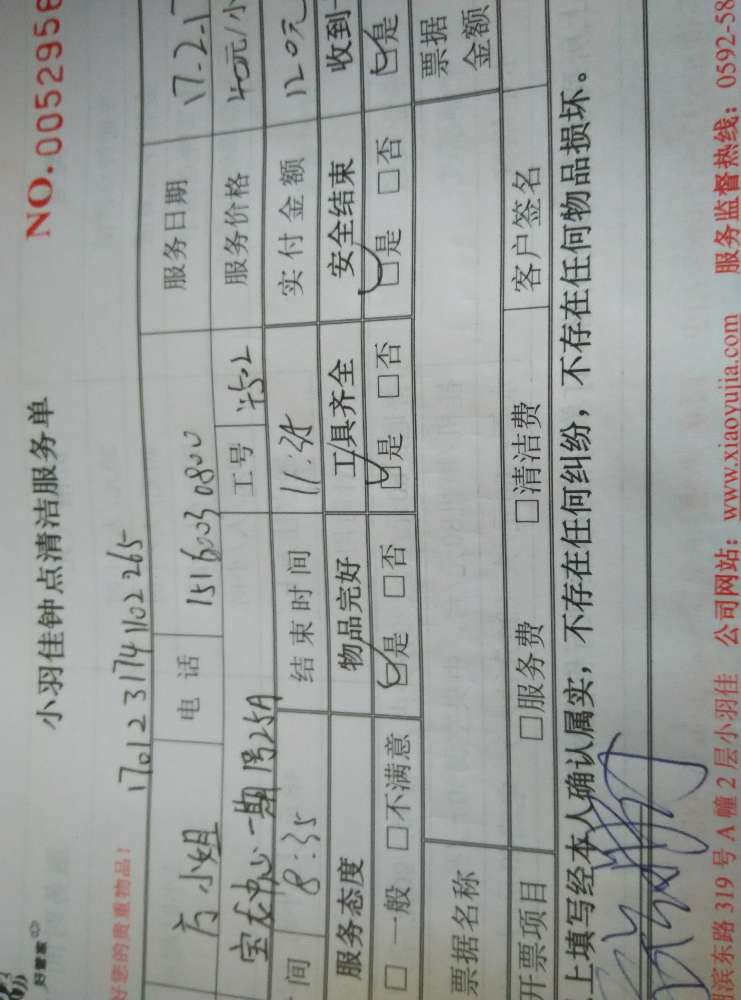 小羽佳钟点清洁服务单
NO.0052956
好慷家
好您的贵重物品！
170123174102265
方小姐 电话 15160030800 服务日期 17.2.1
宝龙中心一期 号25A 工号 服务价格 40元/小
间 8:35 结束时间 11:35 实付金额 120元
服务态度 物品完好 工具齐全 安全结束 收到
□一般 □不满意 □是 □否 □是 □否 □是 □否 □是
票据名称 票据金额
开票项目 □服务费 □清洁费 客户签名
上填写经本人确认属实，不存在任何纠纷，不存在任何物品损坏。
滨东路319号A幢2层小羽佳 公司网站：www.xiaoyujia.com 服务监督热线：0592-58